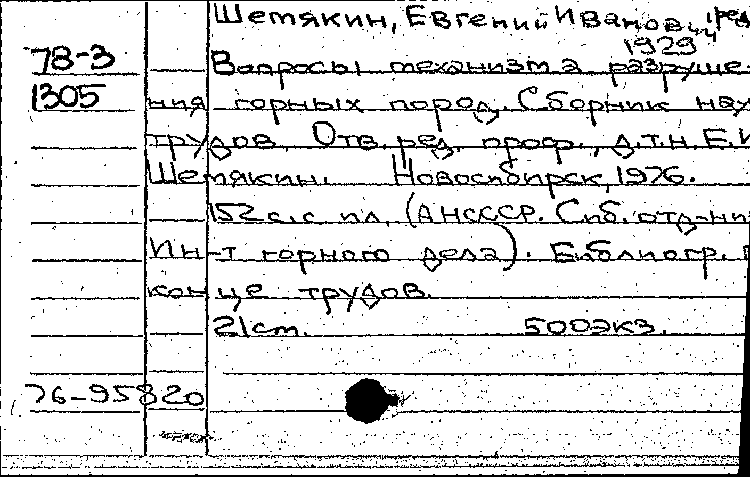 Шемякин, Евгений Иванович, ред.
1929
78-3 Вопросы механизма разруше-
1305 ния горных пород. Сборник нау
трудов. Отв. ред. проф., д.т.н. Е.И
Шемякин. Новосибирск, 1976.
152 с. с ил. (АН СССР. Сиб. отд-ни
Ин-т горного дела). Библиогр. в
конце трудов.
21 ст. 500 экз.
76-95820